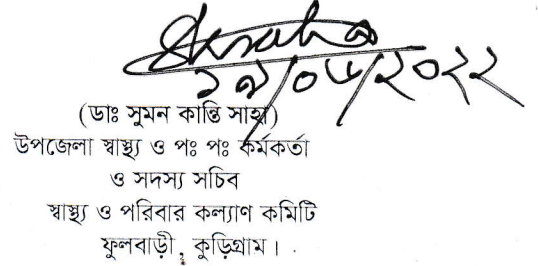 ১৯/০৬/২০২২
(ডাঃ সুমন কান্তি সাহা)
উপজেলা স্বাস্থ্য ও পঃ পঃ কর্মকর্তা
ও সদস্য সচিব
স্বাস্থ্য ও পরিবার কল্যাণ কমিটি
ফুলবাড়ী, কুড়িগ্রাম।